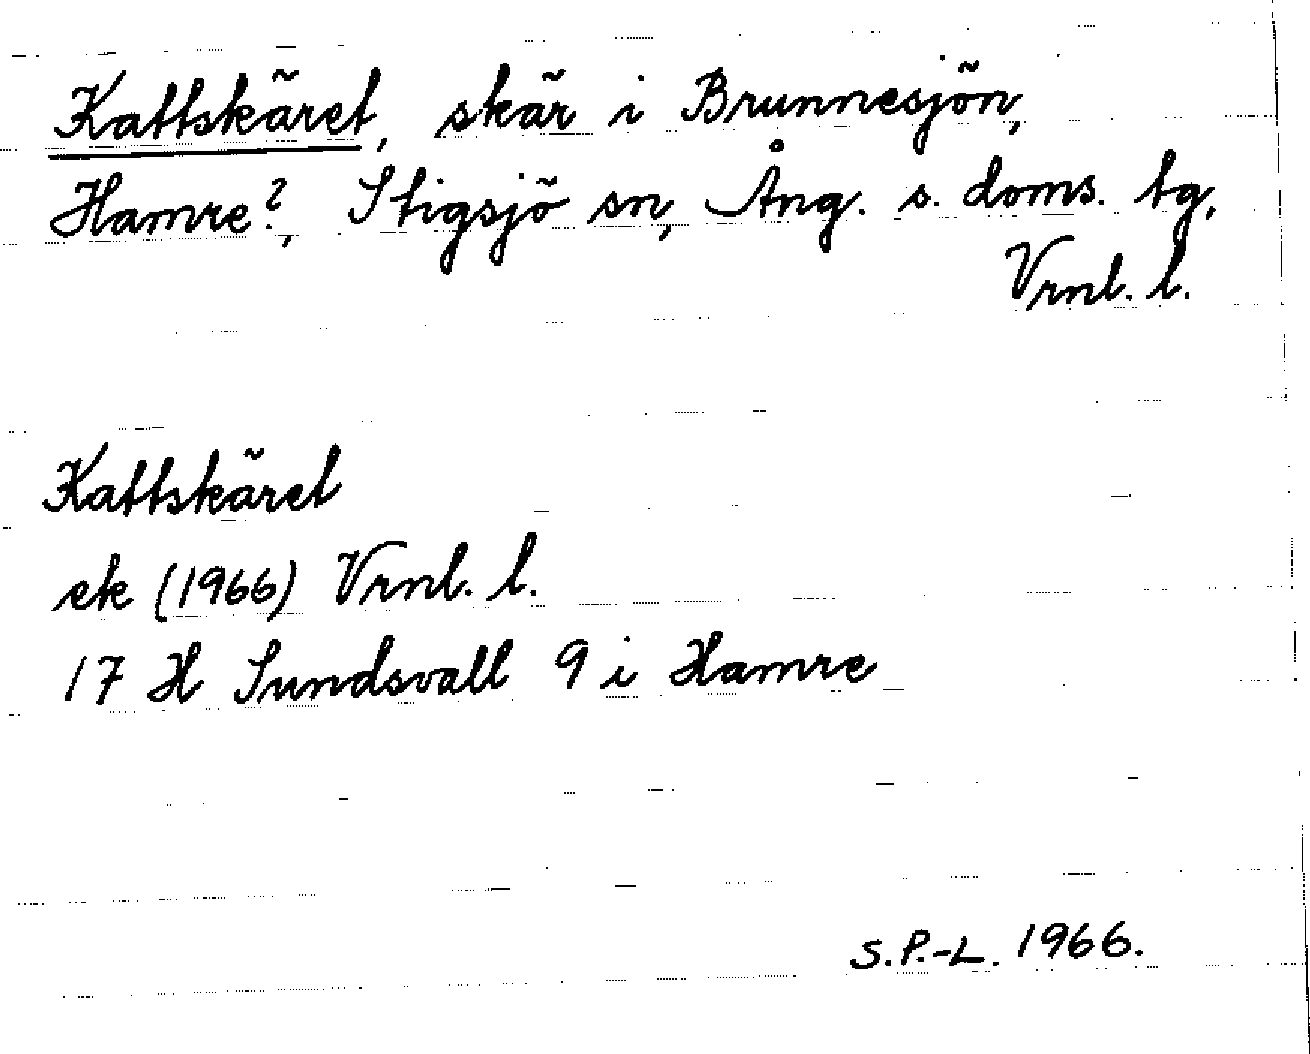 Kattskäret, skär i Brunnesjön,
Hamre?, Stigsjö sn, Ång. s. doms. tg,
Vrnl. l.
Kattskäret
ek (1966) Vrnl. l.
17 H Sundsvall 9 i Hamre
S.P.-L. 1966.